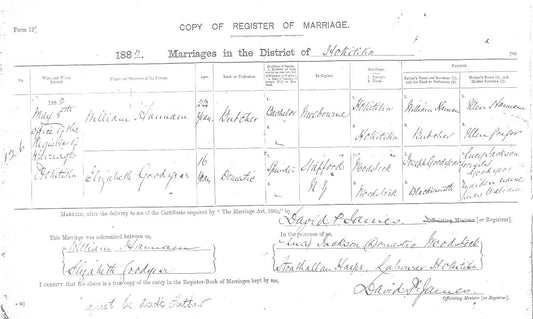 Form 13
COPY OF REGISTER OF MARRIAGE.
1882 Marriages in the District of Hokitika
No.
When and Where Married.
Names and Surnames of the Parties.
Ages.
Rank or Profession.
Birthplace.
PARENTS
Father's Name and Surname
Mother's Name
126
1882
May 8th
Office of the
Registrar of
Marriages
Hokitika
William Hannam
22
Butcher
Bachelor
Melbourne
Hokitika
Hokitika
William Hannam
Butcher
Ellen Hannam
Ellen
Elizabeth Goodyear
16
Domestic
Spinster
Stafford
N Z
Woodstock
Woodstock
Joseph Goodyear
Blacksmith
Lucy Jackson
formerly
Goodyear
maiden name
Lucy
MARRIED, after the delivery to me of the Certificate required by "The Marriage Act, 1880," by
David P. James
Officiating Minister (or Registrar).
This Marriage was solemnised between us,
William Hannam
Elizabeth Goodyear
In the presence of us,
Lucy Jackson Domestic Woodstock
Strathallan Labourer Hokitika
I CERTIFY that the above is a true copy of the entry in the Register-Book of Marriages kept by me,
David P. James
Officiating Minister (or Registrar).
Father